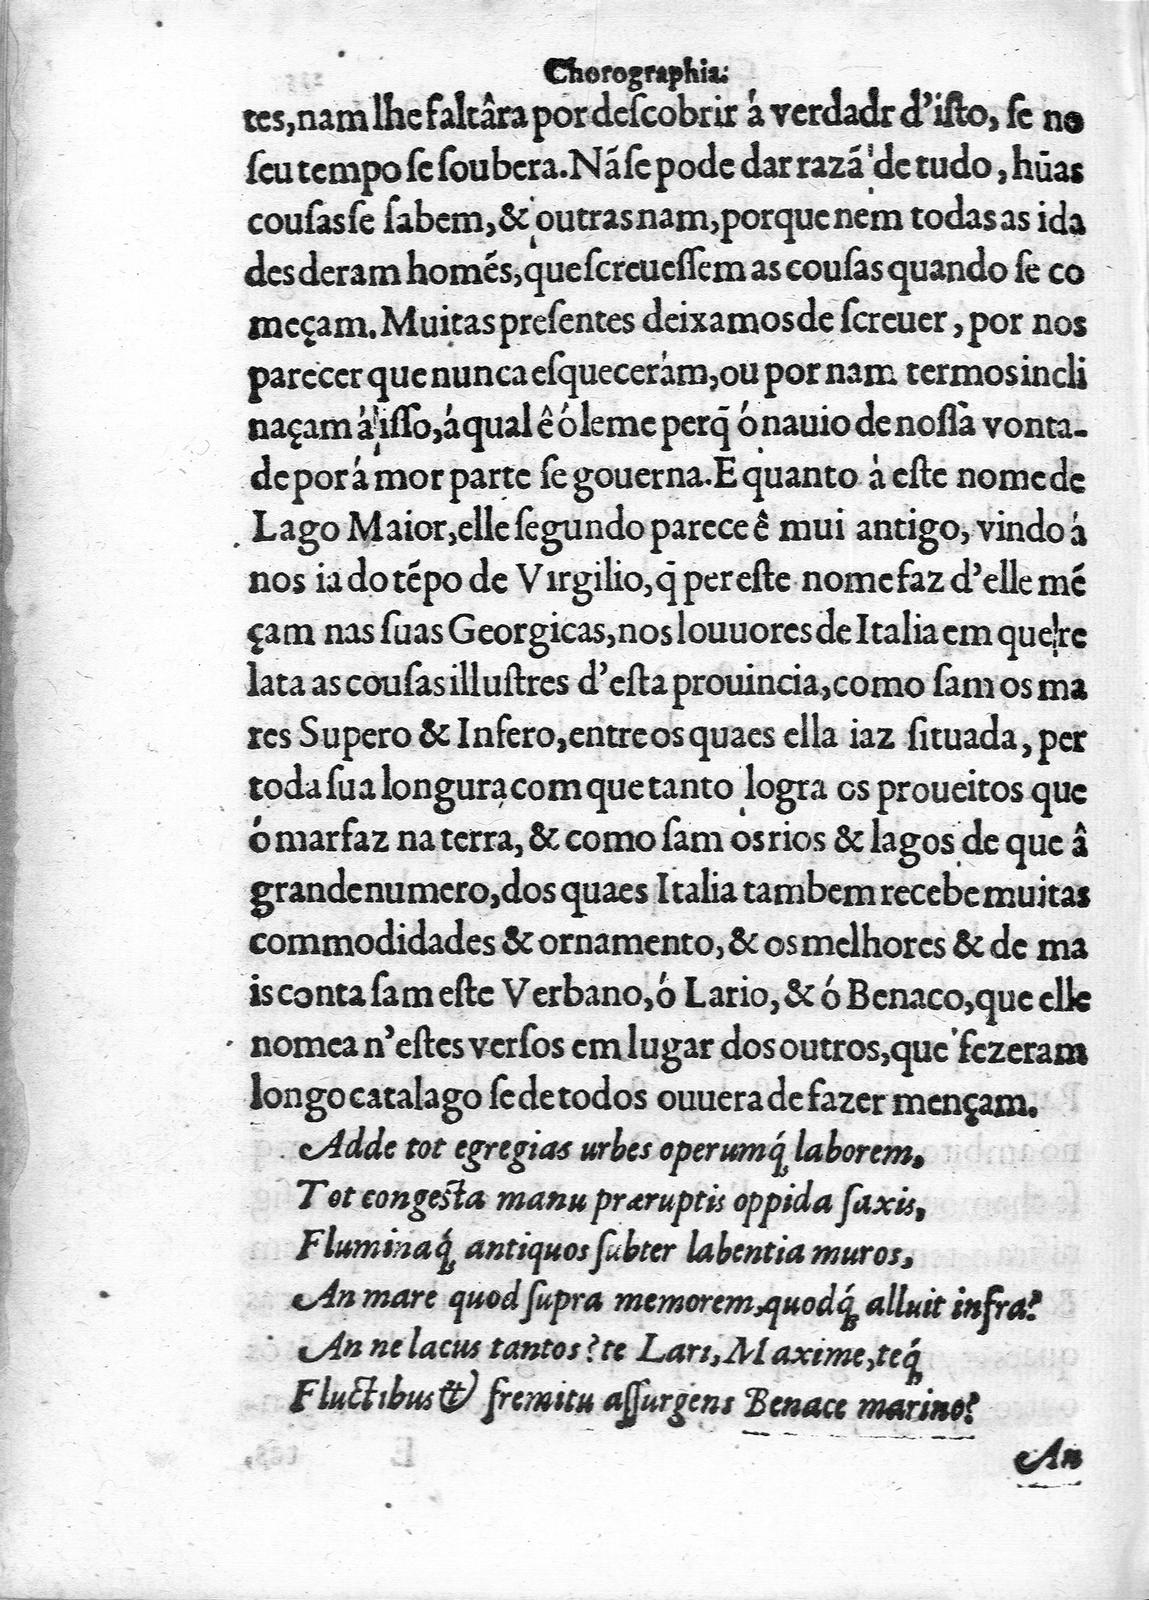 Chorographia:
tes, nam lhe faltâra por deſcobrir á verdadr d'iſto, ſe no
ſeu tempo ſe ſoubera. Nã ſe pode dar razã de tudo, hũas
couſas ſe ſabem, & outras nam, porque nem todas as ida
des deram homẽs, que ſcreueſſem as couſas quando ſe co
meçam. Muitas preſentes deixamos de ſcreuer, por nos
parecer que nunca eſquecerám, ou por nam termos incli
naçam á iſſo, á qual ê ó leme perq̃ ó nauio de noſſa vonta-
de por á mor parte ſe gouerna. E quanto á eſte nome de
Lago Maior, elle ſegundo parece ê mui antigo, vindo á
nos ia do tẽpo de Virgilio, q̃ per eſte nome faz d'elle mẽ
çam nas ſuas Georgicas, nos louuores de Italia em que re
lata as couſas illuſtres d'eſta prouincia, como ſam os ma
res Supero & Infero, entre os quaes ella iaz ſituada, per
toda ſua longura com que tanto logra os proueitos que
ó mar faz na terra, & como ſam os rios & lagos de que â
grande numero, dos quaes Italia tambem recebe muitas
commodidades & ornamento, & os melhores & de ma
is conta ſam eſte Verbano, ó Lario, & ó Benaco, que elle
nomea n'eſtes verſos em lugar dos outros, que fezeram
longo catalago ſe de todos ouuera de fazer mençam.
Adde tot egregias urbes operumq́; laborem,
Tot congeſta manu præruptis oppida ſaxis,
Fluminaq́; antiquos ſubter labentia muros,
An mare quod ſupra memorem, quodq́; alluit infra?
An ne lacus tantos? te Lari, Maxime, teq́;
Fluctibus & fremitu aſſurgens Benace marino?
An